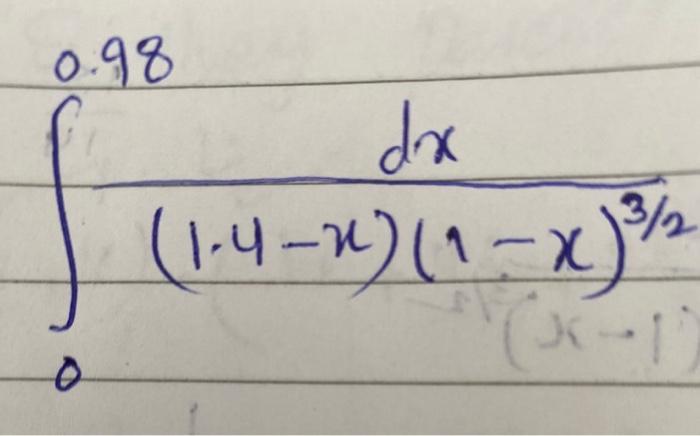 0.98
∫ dx
(1.4-x)(1-x)^3/2
0